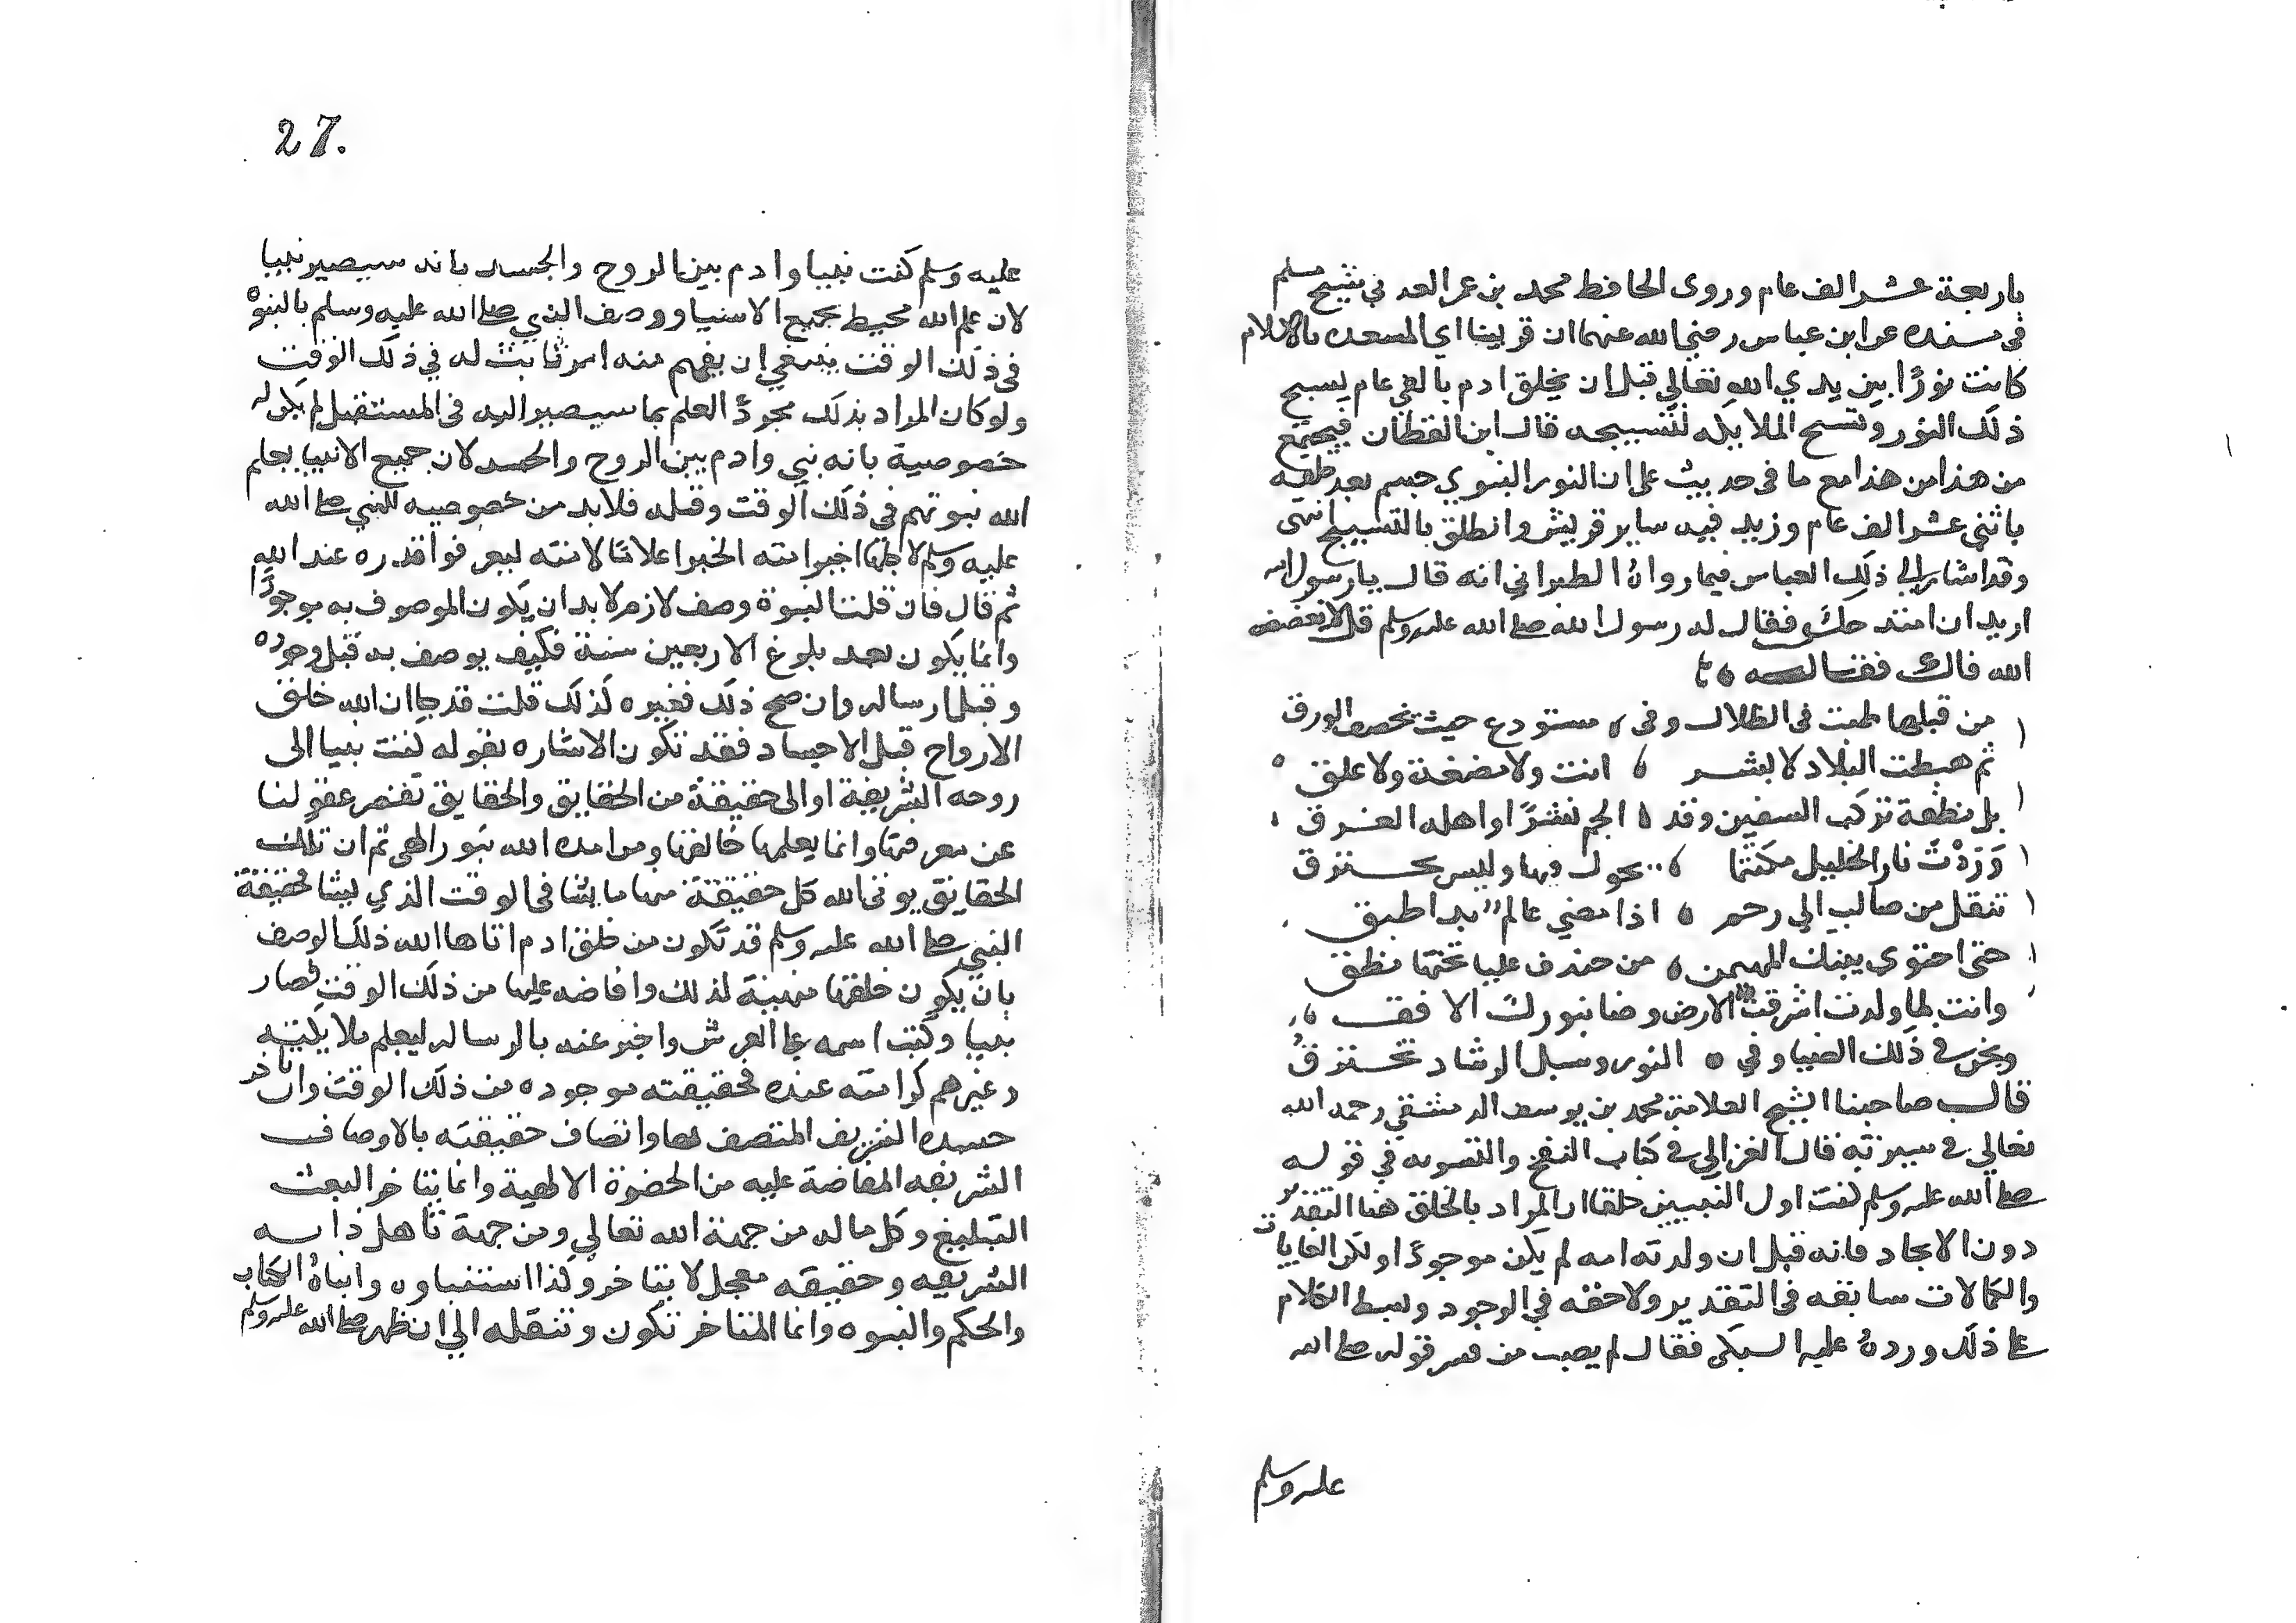 باربعة عشر الف عام وروى الحافظ محمد بن عمر العدني شيخ مسلم
في مسنده عن ابن عباس رضي الله عنهما ان قريشا اي المسعده بالاسلام
كانت نورًا بين يدي الله تعالي قبل ان يخلق ادم بالفي عام يسبح
ذلك النور وتسبح الملايكه لتسبيحه قال ابن القطان فيجتمع
من هذا مع ما في حديث علي ان النور النبوي جسم بعد خلقه
باثني عشر الف عام وزيد فيه ساير قريش وانطلق بالتسبيح انتهى
وقد اشار الي ذلك العباس فيما رواه الطبراني انه قال يا رسول الله
اريد ان امتدحك فقال له رسول الله صلى الله عليه وسلم قل لا يفضض
الله فاك فقال
من قبلها طبت في الظلال وفي مستودع حيث يخصف الورق
ثم هبطت البلاد لا بشر انت ولا مضغة ولا علق
بل نطفة تركب السفين وقد الجم نسرًا واهله الغرق
وَرَدْتَ نار الخليل مكتتما تجول فيها وليس تحترق
تنقل من صالب الي رحم اذا مضي عالم بدا طبق
حتى احتوي بيتك المهيمن من خندف عليا تحتها نطق
وانت لما ولدت اشرقت الارض وضا بنورك الافق
ونحن في ذلك الضيا وفي النور وسبل الرشاد نخترق
قال صاحبنا الشيخ العلامة محمد بن يوسف الدمشقي رحمه الله
تعالي في سيرته قال الغزالي في كتاب النفخ والتسويه في قوله
صلى الله عليه وسلم كنت اول النبيين خلقا ان المراد بالخلق هنا التقدير
دون الايجاد فانه قبل ان ولدته امه لم يكن موجودًا ولكن الغايات
والكمالات سابقه في التقدير ولاحقه في الوجود وبسط الكلام
على ذلك ورده عليه السبكي فقال لم يصب من فسر قوله صلى الله
عليه وسلم
27.
عليه وسلم كنت نبيا وادم بين الروح والجسد بانه سيصير نبيا
لان علم الله محيط بجميع الاشيا ووصف النبي صلى الله عليه وسلم بالنبوة
في ذلك الوقت ينبغي ان يفهم منه امر ثابت له في ذلك الوقت
ولو كان المراد بذلك مجردً العلم بما سيصير اليه في المستقبل لم يكن له
خصوصية بانه نبي وادم بين الروح والجسد لان جميع الانبيا يعلم
الله نبوتهم في ذلك الوقت وقبله فلابد من خصوصيه للنبي صلى الله
عليه وسلم لاجلها اخبر امته الخبر اعلامًا لامته ليعرفوا قدره عند الله
ثم قال فان قلت النبوة وصف لازم لابد ان يكون الموصوف به موجودًا
وانما يكون بعد بلوغ الاربعين سنة فكيف يوصف به قبل وجوده
وقبل ارساله وان صح ذلك فغيره لذلك قلت قد جا ان الله خلق
الارواح قبل الاجساد فقد تكون الاشاره بقوله كنت نبيا الى
روحه الشريفة او الى حقيقة من الحقايق والحقايق تقصر عقولنا
عن معرفتها وانما يعلمها خالقها ومن امده الله بنور الهي ثم ان تلك
الحقايق يوتي الله كل حقيقة منها ما يشا في الوقت الذي يشا فحقيقة
النبي صلى الله عليه وسلم قد تكون من خلق ادم اتاها الله ذلك الوصف
بان يكون خلقها متهيية لذلك وافاضه عليها من ذلك الوقت فصار
نبيا وكتب اسمه على العرش واخبر عنه بالرساله ليعلم ملايكته
وغيرهم كرامته عنده فحقيقته موجوده من ذلك الوقت وان تاخر
جسده الشريف المتصف بها واتصاف حقيقته بالاوصاف
الشريفه المفاضة عليه من الحضرة الالهية وانما يتاخر البعث
التبليغ وكل ما له من جهة الله تعالي ومن جهة تاهل ذاته
الشريفه وحقيقه معجل لا يتاخر وكذا استنباوه وايتاه الكتاب
والحكم والنبوه وانما المتاخر تكون وتنقله الي ان ظهر صلى الله عليه وسلم